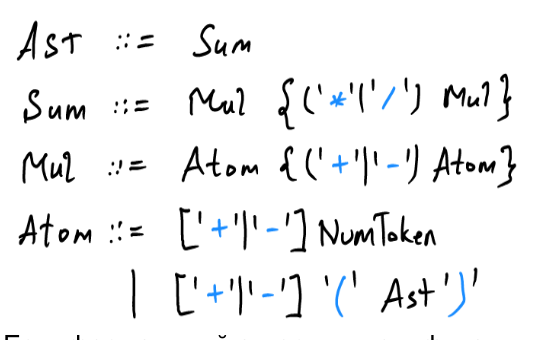 Ast ::= Sum
Sum ::= Mul {('*'|'/') Mul}
Mul ::= Atom {('+'|'-') Atom}
Atom ::= ['+'|'-'] NumToken
| ['+'|'-'] '(' Ast ')'